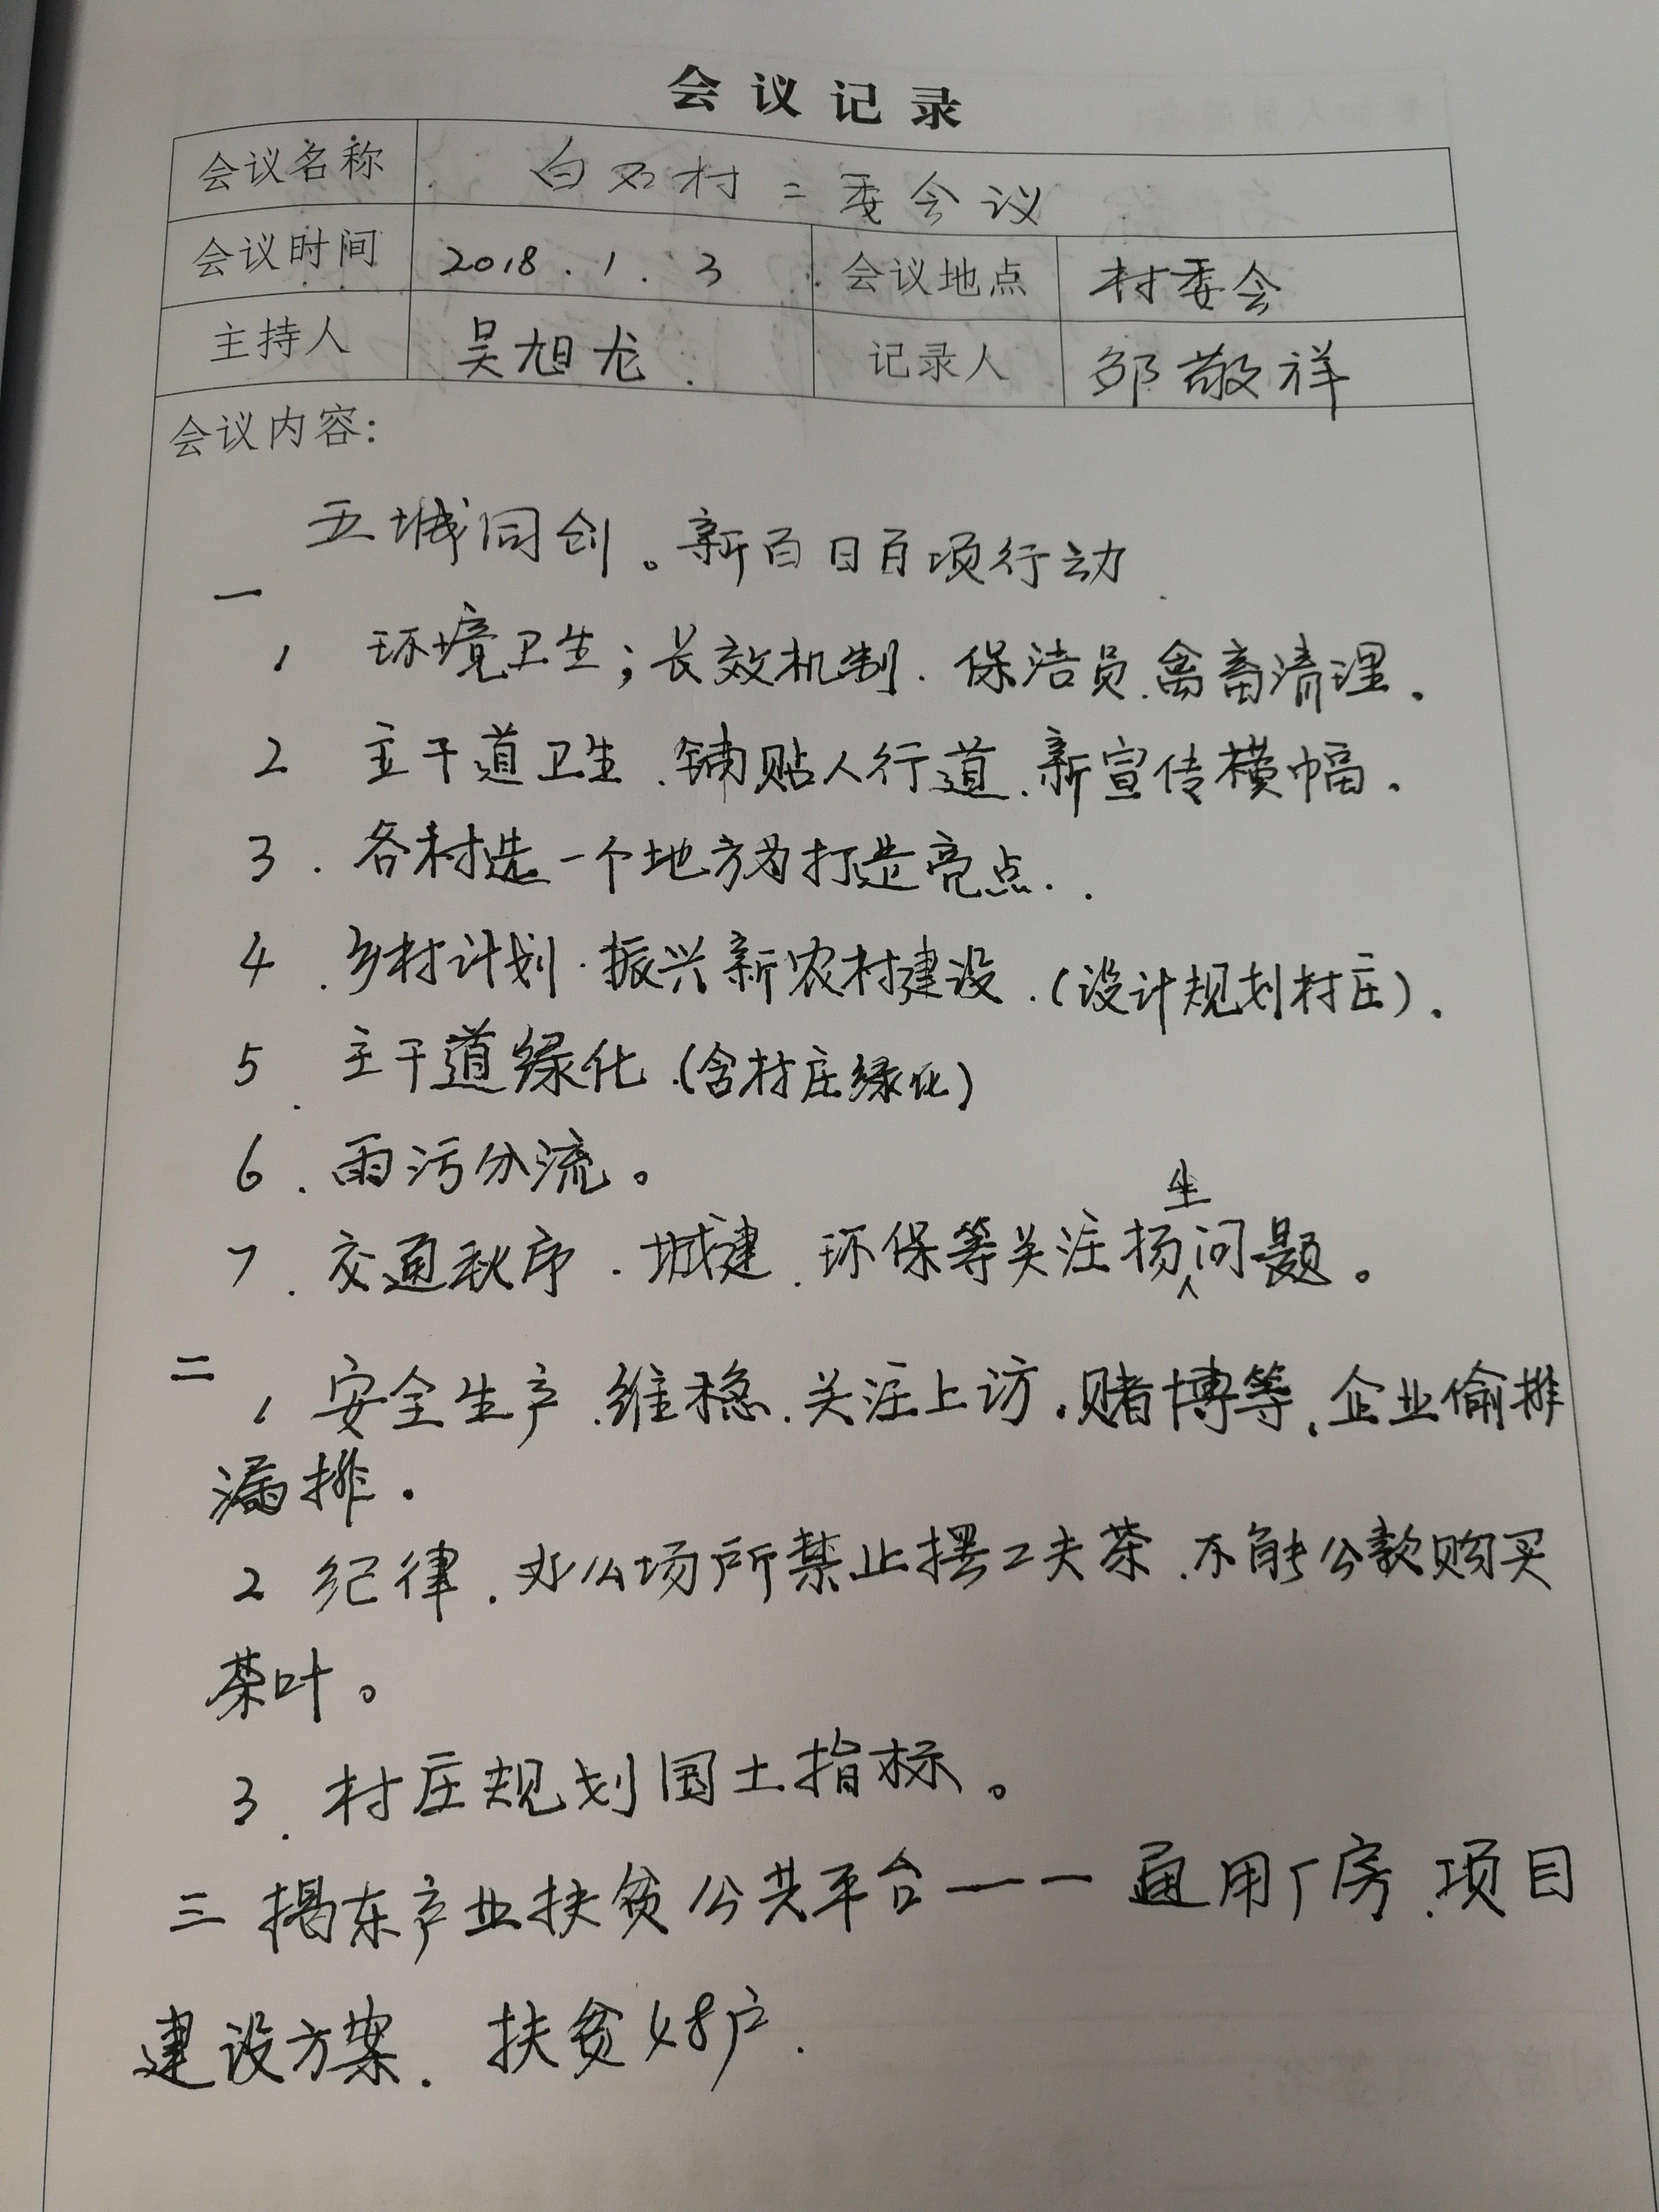 会议记录
会议名称 白石村二委会议
会议时间 2018.1.3 会议地点 村委会
主持人 吴旭龙 记录人 邹敬祥
会议内容:
五城同创。新百日百项行动
一
1 环境卫生;长效机制.保洁员.禽畜清理.
2 主干道卫生.铺贴人行道.新宣传横幅.
3.各村选一个地方为打造亮点..
4.乡村计划.振兴新农村建设.(设计规划村庄).
5.主干道绿化.(含村庄绿化)
6.雨污分流。
7.交通秋序.城建.环保等关注扬生问题。
二 1 安全生产.维稳.关注上访.赌博等.企业偷排
漏排.
2 纪律.办公场所禁止摆工夫茶.不能公款购买
茶叶。
3.村庄规划国土指标。
三 揭东产业扶贫公共平台——通用厂房.项目
建设方案.扶贫48户.